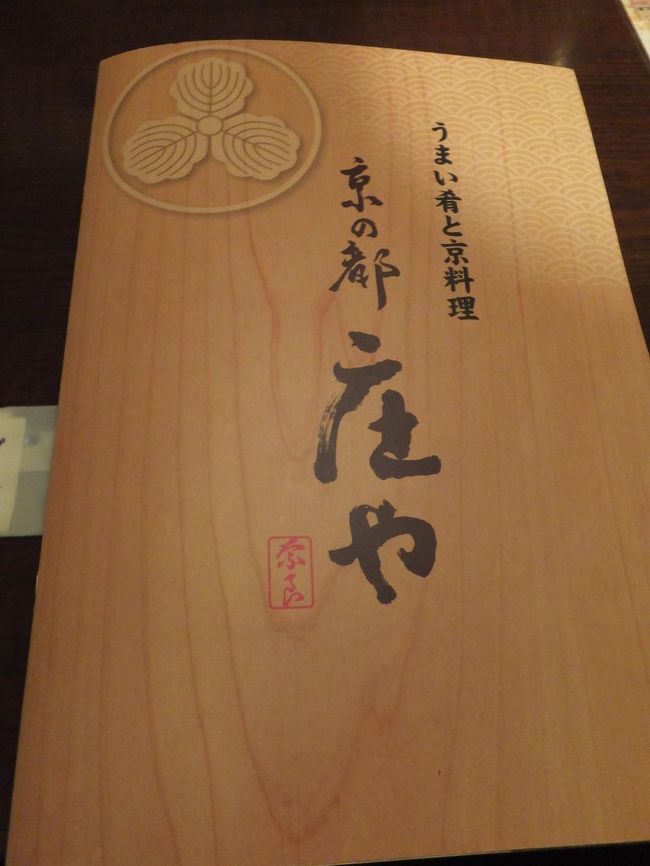 うまい肴と京料理
京の都
庄や
奈良